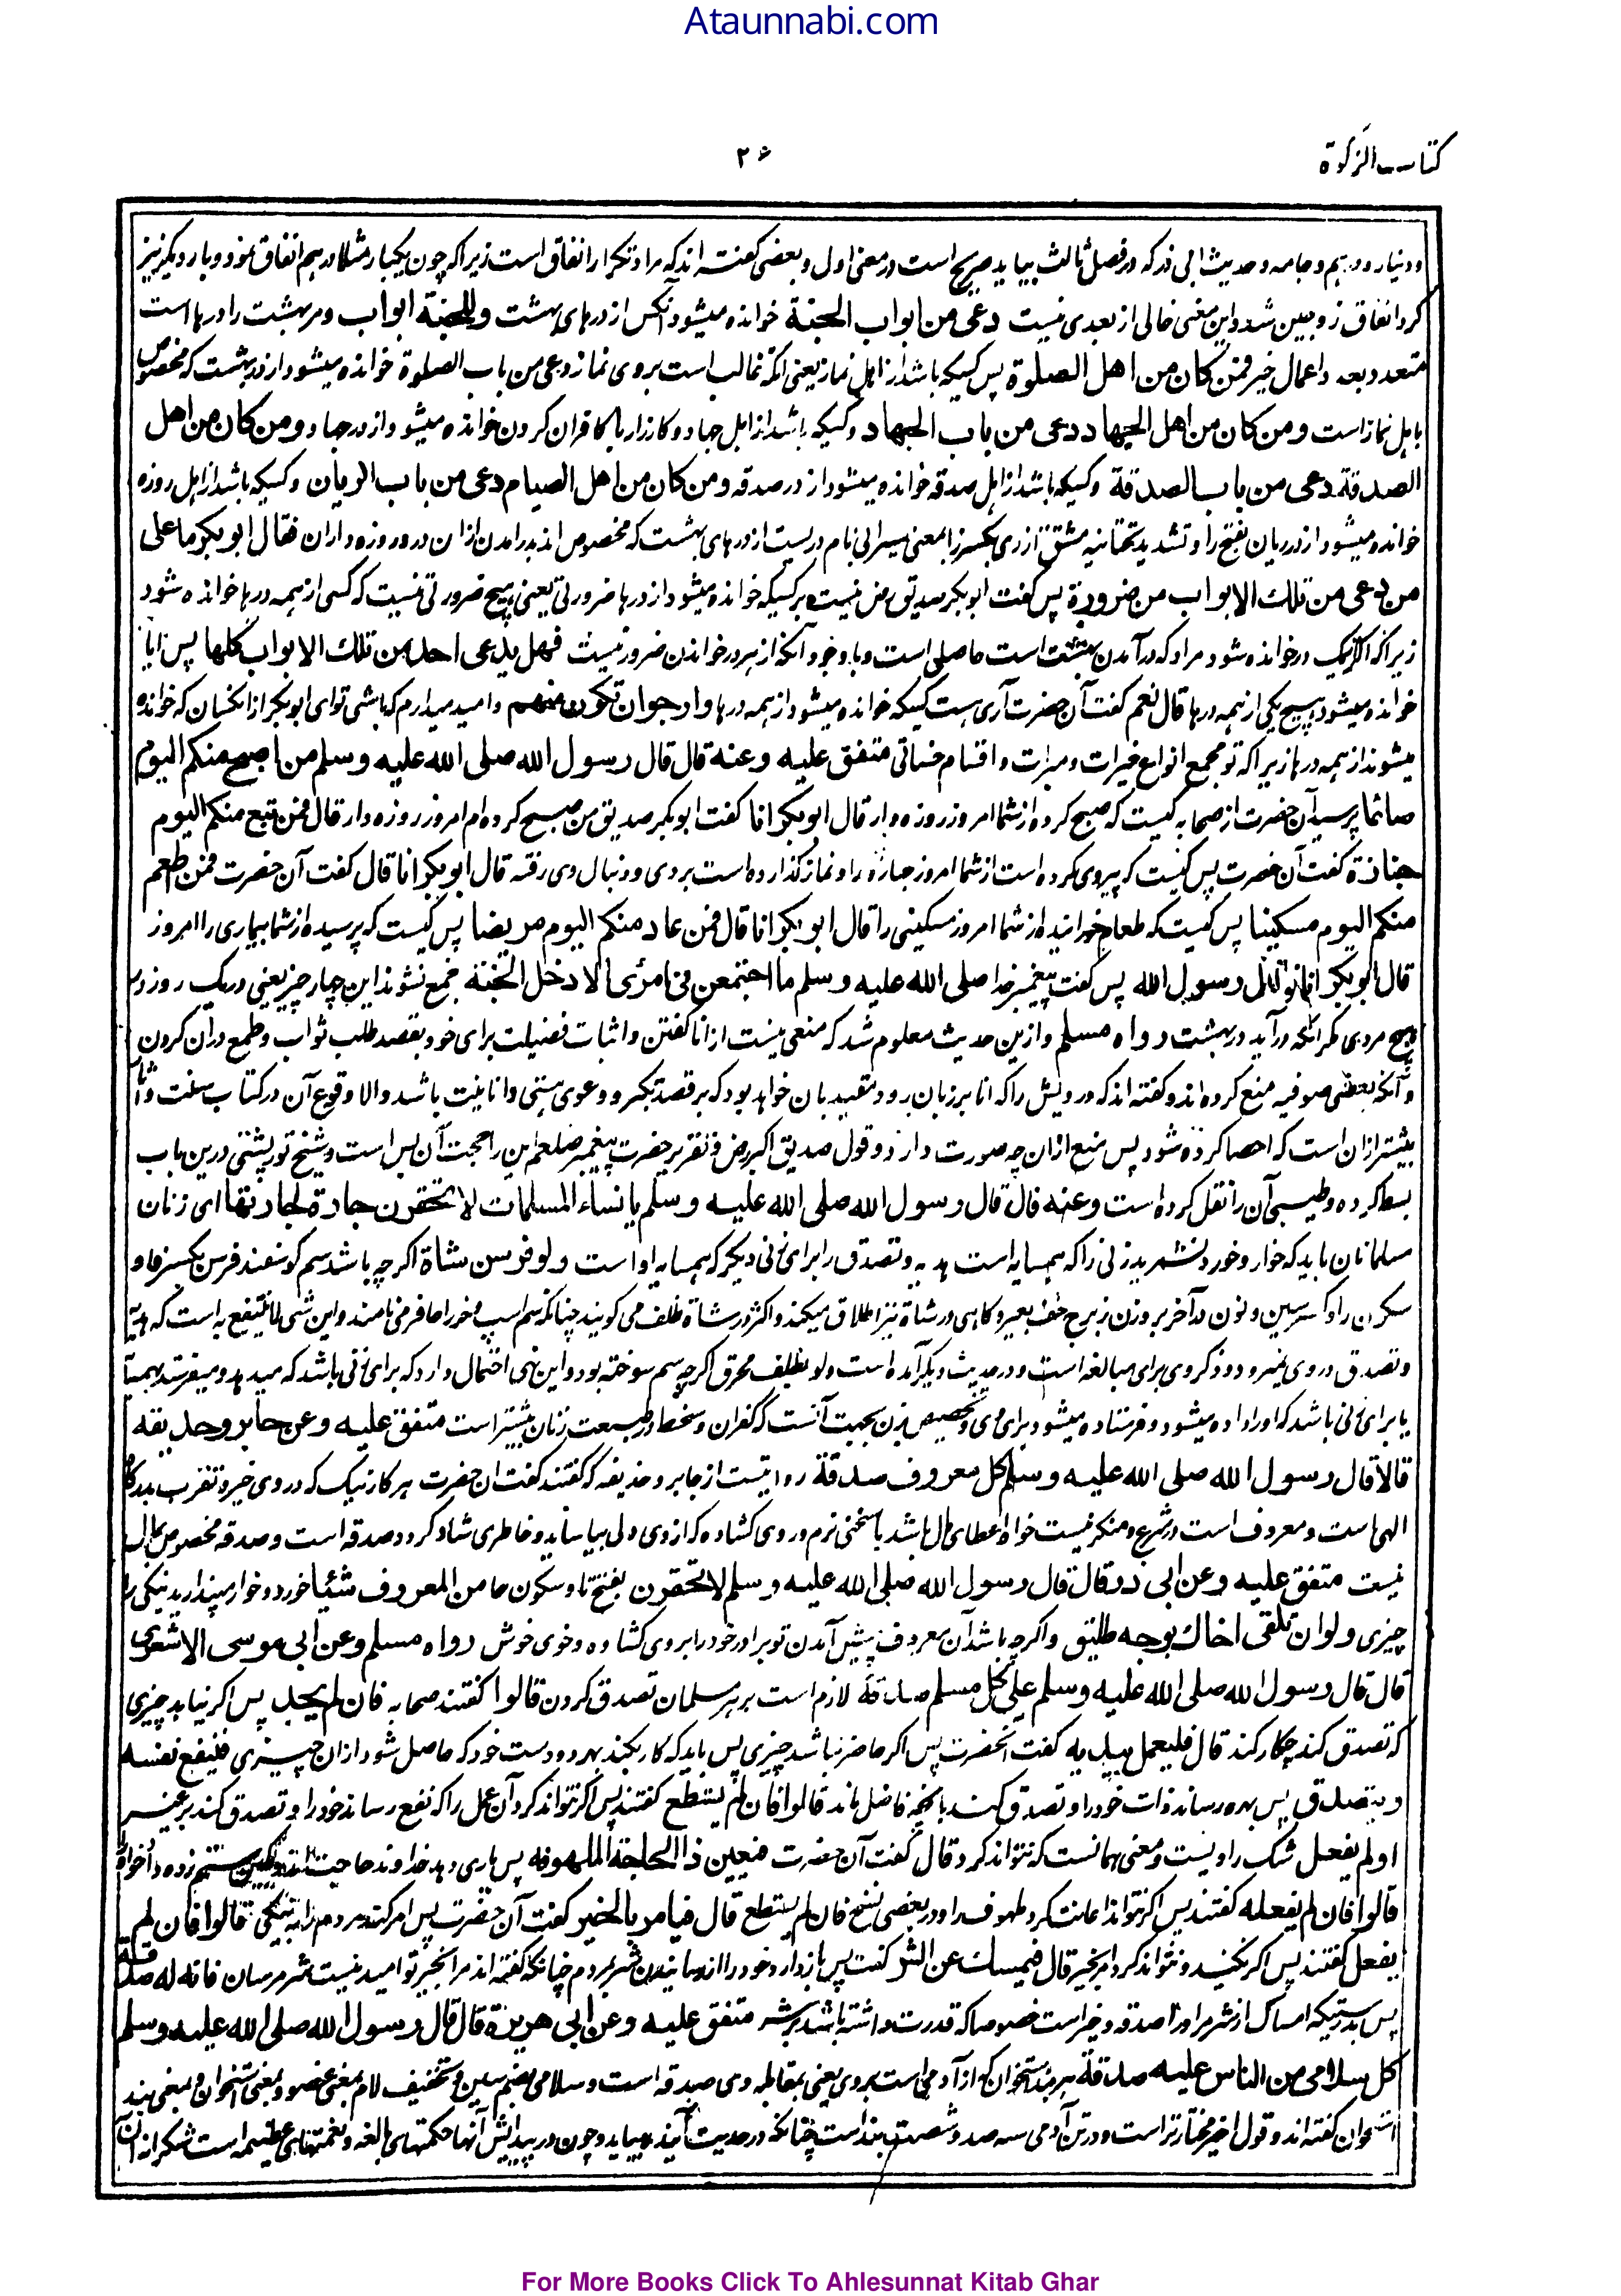 Ataunnabi.com
کتاب الزکوٰة
۲۶
ودینار و درہم و جامہ و حدیث ابی ذر کہ در فصل ثالث بیاید صریح است در معنی اول و بعضی گفتہ اند کہ مراد تکرار انفاق است زیرا کہ چون یکبار مثلا درہم انفاق نمود و بار دیگر نیز
کرد انفاق زوجین شد و این معنی خالی از بعدی نیست دعی من ابواب الجنة خواندہ میشود آنکس از درہای بہشت وللجنة ابواب و مر بہشت را درہا است
متعدد بعدد اعمال خیر فمن کان من اھل الصلوة پس کسیکہ باشد از اہل نماز یعنی آنکہ غالب است بروی نماز دعی من باب الصلوة خواندہ میشود از در بہشت کہ مخصوص
باہل نماز است ومن کان من اھل الجہاد دعی من باب الجہاد و کسیکہ باشد از اہل جہاد و کارزار با کافران کردن خواندہ میشود از در جہاد ومن کان من اھل
الصدقة دعی من باب الصدقة و کسیکہ باشد از اہل صدقہ خواندہ میشود از در صدقہ ومن کان من اھل الصیام دعی من باب الریان و کسیکہ باشد از اہل روزہ
خواندہ میشود از در ریان بفتح را و تشدید تحتانیہ مشتق از ری بکسر را بمعنی سیرابی نام دریست از درہای بہشت کہ مخصوص اند بدرآمدن ازان در روزہ داران فقال ابوبکر ما علی
من دعی من تلك الابواب من ضرورة پس گفت ابوبکر صدیق رض نیست بر کسیکہ خواندہ میشود از درہا ضرورتی یعنی ہیچ ضرورتی نیست کہ کسی از ہمہ درہا خواندہ شود
زیرا کہ اگر از یک در خواندہ شود مراد کہ درآمدن بہشت است حاصلی است و با وجود آنکہ از ہر در خواندن ضرور نیست فھل یدعی احد من تلك الابواب کلھا پس آیا
خواندہ میشود ہیچ یکی از ہمہ درہا قال نعم گفت آن حضرت آری ہست کسیکہ خواندہ میشود از ہمہ درہا وارجو ان تکون منھم و امید میدارم کہ باشی تو ای ابوبکر از آنکسان کہ خواندہ
میشوند از ہمہ درہا زیرا کہ تو مجمع انواع خیرات و مبرات و اقسام حسناتی متفق علیہ وعنہ قال قال رسول اللہ صلی اللہ علیہ وسلم من اصبح منکم الیوم
صائما پرسید آن حضرت از صحابہ کیست کہ صبح کردہ از شما امروز روزہ دار قال ابوبکر انا گفت ابوبکر صدیق من صبح کردہ ام امروز روزہ دار قال فمن تبع منکم الیوم
جنازة گفت آن حضرت پس کیست کہ پیروی کردہ است از شما امروز جنازہ را و نماز گذاردہ است بروی و دنبال وی رفتہ قال ابوبکر انا قال گفت آن حضرت فمن اطعم
منکم الیوم مسکینا پس کیست کہ طعام خورانیدہ از شما امروز مسکینی را قال ابوبکر انا قال فمن عاد منکم الیوم مریضا پس کیست کہ پرسیدہ از شما بیماری را امروز
قال ابوبکر انا فقال رسول اللہ پس گفت پیغمبر خدا صلی اللہ علیہ وسلم ما اجتمعن فی امرئ الا دخل الجنة جمع نشوند این چہار چیز یعنی در یک روز در
ہیچ مردی مگر آنکہ درآید در بہشت رواہ مسلم و ازین حدیث معلوم شد کہ منعی نیست از انا گفتن و اثبات فضیلت برای خود بقصد طلب ثواب و طمع دران کردن
و آنکہ بعضی صوفیہ منع کردہ اند و گفتہ اند کہ درویش را کہ انا بر زبان رود مقید بان خواہد بود کہ بر قصد تکبر و دعوی ہستی و انانیت باشد والا وقوع آن در کتاب و سنت و آثار
بیشتر ازان است کہ احصا کردہ شود پس منع ازان چہ صورت دارد و قول صدیق اکبر رض و تقریر حضرت پیغمبر صلعم این را حجت آن بس است و شیخ تورپشتی درین باب
بسط کردہ و طیبی آن را نقل کردہ است وعنہ قال قال رسول اللہ صلی اللہ علیہ وسلم یا نساء المسلمات لا تحقرن جارة لجارتھا ای زنان
مسلمانان باید کہ خوار و خورد نشمرید زنی را کہ ہمسایہ است ہدیہ و تصدق را برای زنی دیگر کہ ہمسایہ او است ولو فرسن شاة اگرچہ باشد سم گوسفند فرسن بکسر فا و
سکون را و کسر سین و نون در آخر بر وزن زبرج خف بعیر و گاہی در شاة نیز اطلاق میکنند و اکثر در شاة ظلف می گویند چنانکہ سم اسپ و خر را حافر می نامند و این شی لا ینتفع بہ است کہ ہدیہ
و تصدق در وی نمیرود و ذکر وی برای مبالغہ است و در حدیث دیگر آمدہ است ولو بظلف محرق اگرچہ سم سوختہ بود و این نہی احتمال دارد کہ برای زنی باشد کہ میدہد و میفرستد بہمسایہ
یا برای زنی باشد کہ او را دادہ میشود و فرستادہ میشود برای وی و تخصیص بزن بجہت آنست کہ کفران و سخط در طبیعت زنان بیشتر است متفق علیہ وعن جابر وحذیفة
قالا قال رسول اللہ صلی اللہ علیہ وسلم کل معروف صدقة روایتست از جابر و حذیفہ کہ گفتند گفت آن حضرت ہر کار نیک کہ در وی خیر و تقرب بدرگاہ
الہی است و معروف است در شرع و منکر نیست خواہ اعطای مال باشد یا سخنی نرم و روی کشادہ کہ از وی دلی بیاساید و خاطری شاد گردد صدقہ است و صدقہ مخصوص بمال
نیست متفق علیہ وعن ابی ذر قال قال رسول اللہ صلی اللہ علیہ وسلم لا تحقرن بفتح تا و سکون حا من المعروف شیئا خورد و خوار مپندارید نیکی را
چیزی ولو ان تلقی اخاك بوجہ طلیق و اگرچہ باشد آن معروف پیش آمدن تو برادر خود را بروی کشادہ و خوی خوش رواہ مسلم وعن ابی موسی الاشعری
قال قال رسول اللہ صلی اللہ علیہ وسلم علی کل مسلم صدقة لازم است بر ہر مسلمان تصدق کردن قالوا گفتند صحابہ فان لم یجد پس اگر نیابد چیزی
کہ تصدق کند چکار کند قال فلیعمل بیدیہ گفت آنحضرت پس اگر حاضر نباشد چیزی پس باید کہ کار بکند بہر دو دست خود کہ حاصل شود ازان چیزی فلینفع نفسہ
ویتصدق پس بہرہ رساند ذات خود را و تصدق کند بانچہ فاضل ماند قالوا فان لم یستطع گفتند پس اگر نتواند کرد آن عمل را کہ نفع رساند خود را و تصدق کند بر غیر
اولم یفعل شک راویست و معنی ہمانست کہ نتواند کرد قال گفت آن حضرت فیعین ذا الحاجة الملھوف پس یاری دہد خداوند حاجت ستم زدہ
قالوا فان لم یفعلہ گفتند پس اگر نتواند اعانت کرد ملہوف را و در بعضی نسخ فان لم یستطع قال فیامر بالخیر گفت آن حضرت پس امر کند مردم را بہ نیکی قالوا فان لم
یفعل گفتند پس اگر نکند و نتواند کرد امر بخیر قال فیمسك عن الشر گفت پس باز دارد خود را از رسانیدن شر بمردم چنانکہ گفتہ اند مرا بخیر تو امید نیست شر مرسان فانہ لہ صدقة
پس بدرستیکہ امساک از شر مر او را صدقہ و خیر است خصوصا کہ قدرت داشتہ باشد بر شر متفق علیہ وعن ابی ھریرة قال قال رسول اللہ صلی اللہ علیہ وسلم
کل سلامی من الناس علیہ صدقة ہر بند استخوان کہ از آدمی است بروی یعنی بمقابلہ وی صدقہ است و سلامی بضم سین و تخفیف لام بمعنی عضو و بمعنی استخوان و بمعنی بند
استخوان گفتہ اند و قول اخیر مختار تر است و در تن آدمی سہ صد و شصت بند است چنانکہ در حدیث آیندہ بیاید و چون در پیدایش آنہا حکمتہای بالغہ و نعمتہای عظیمہ است شکرانہ آن
For More Books Click To Ahlesunnat Kitab Ghar